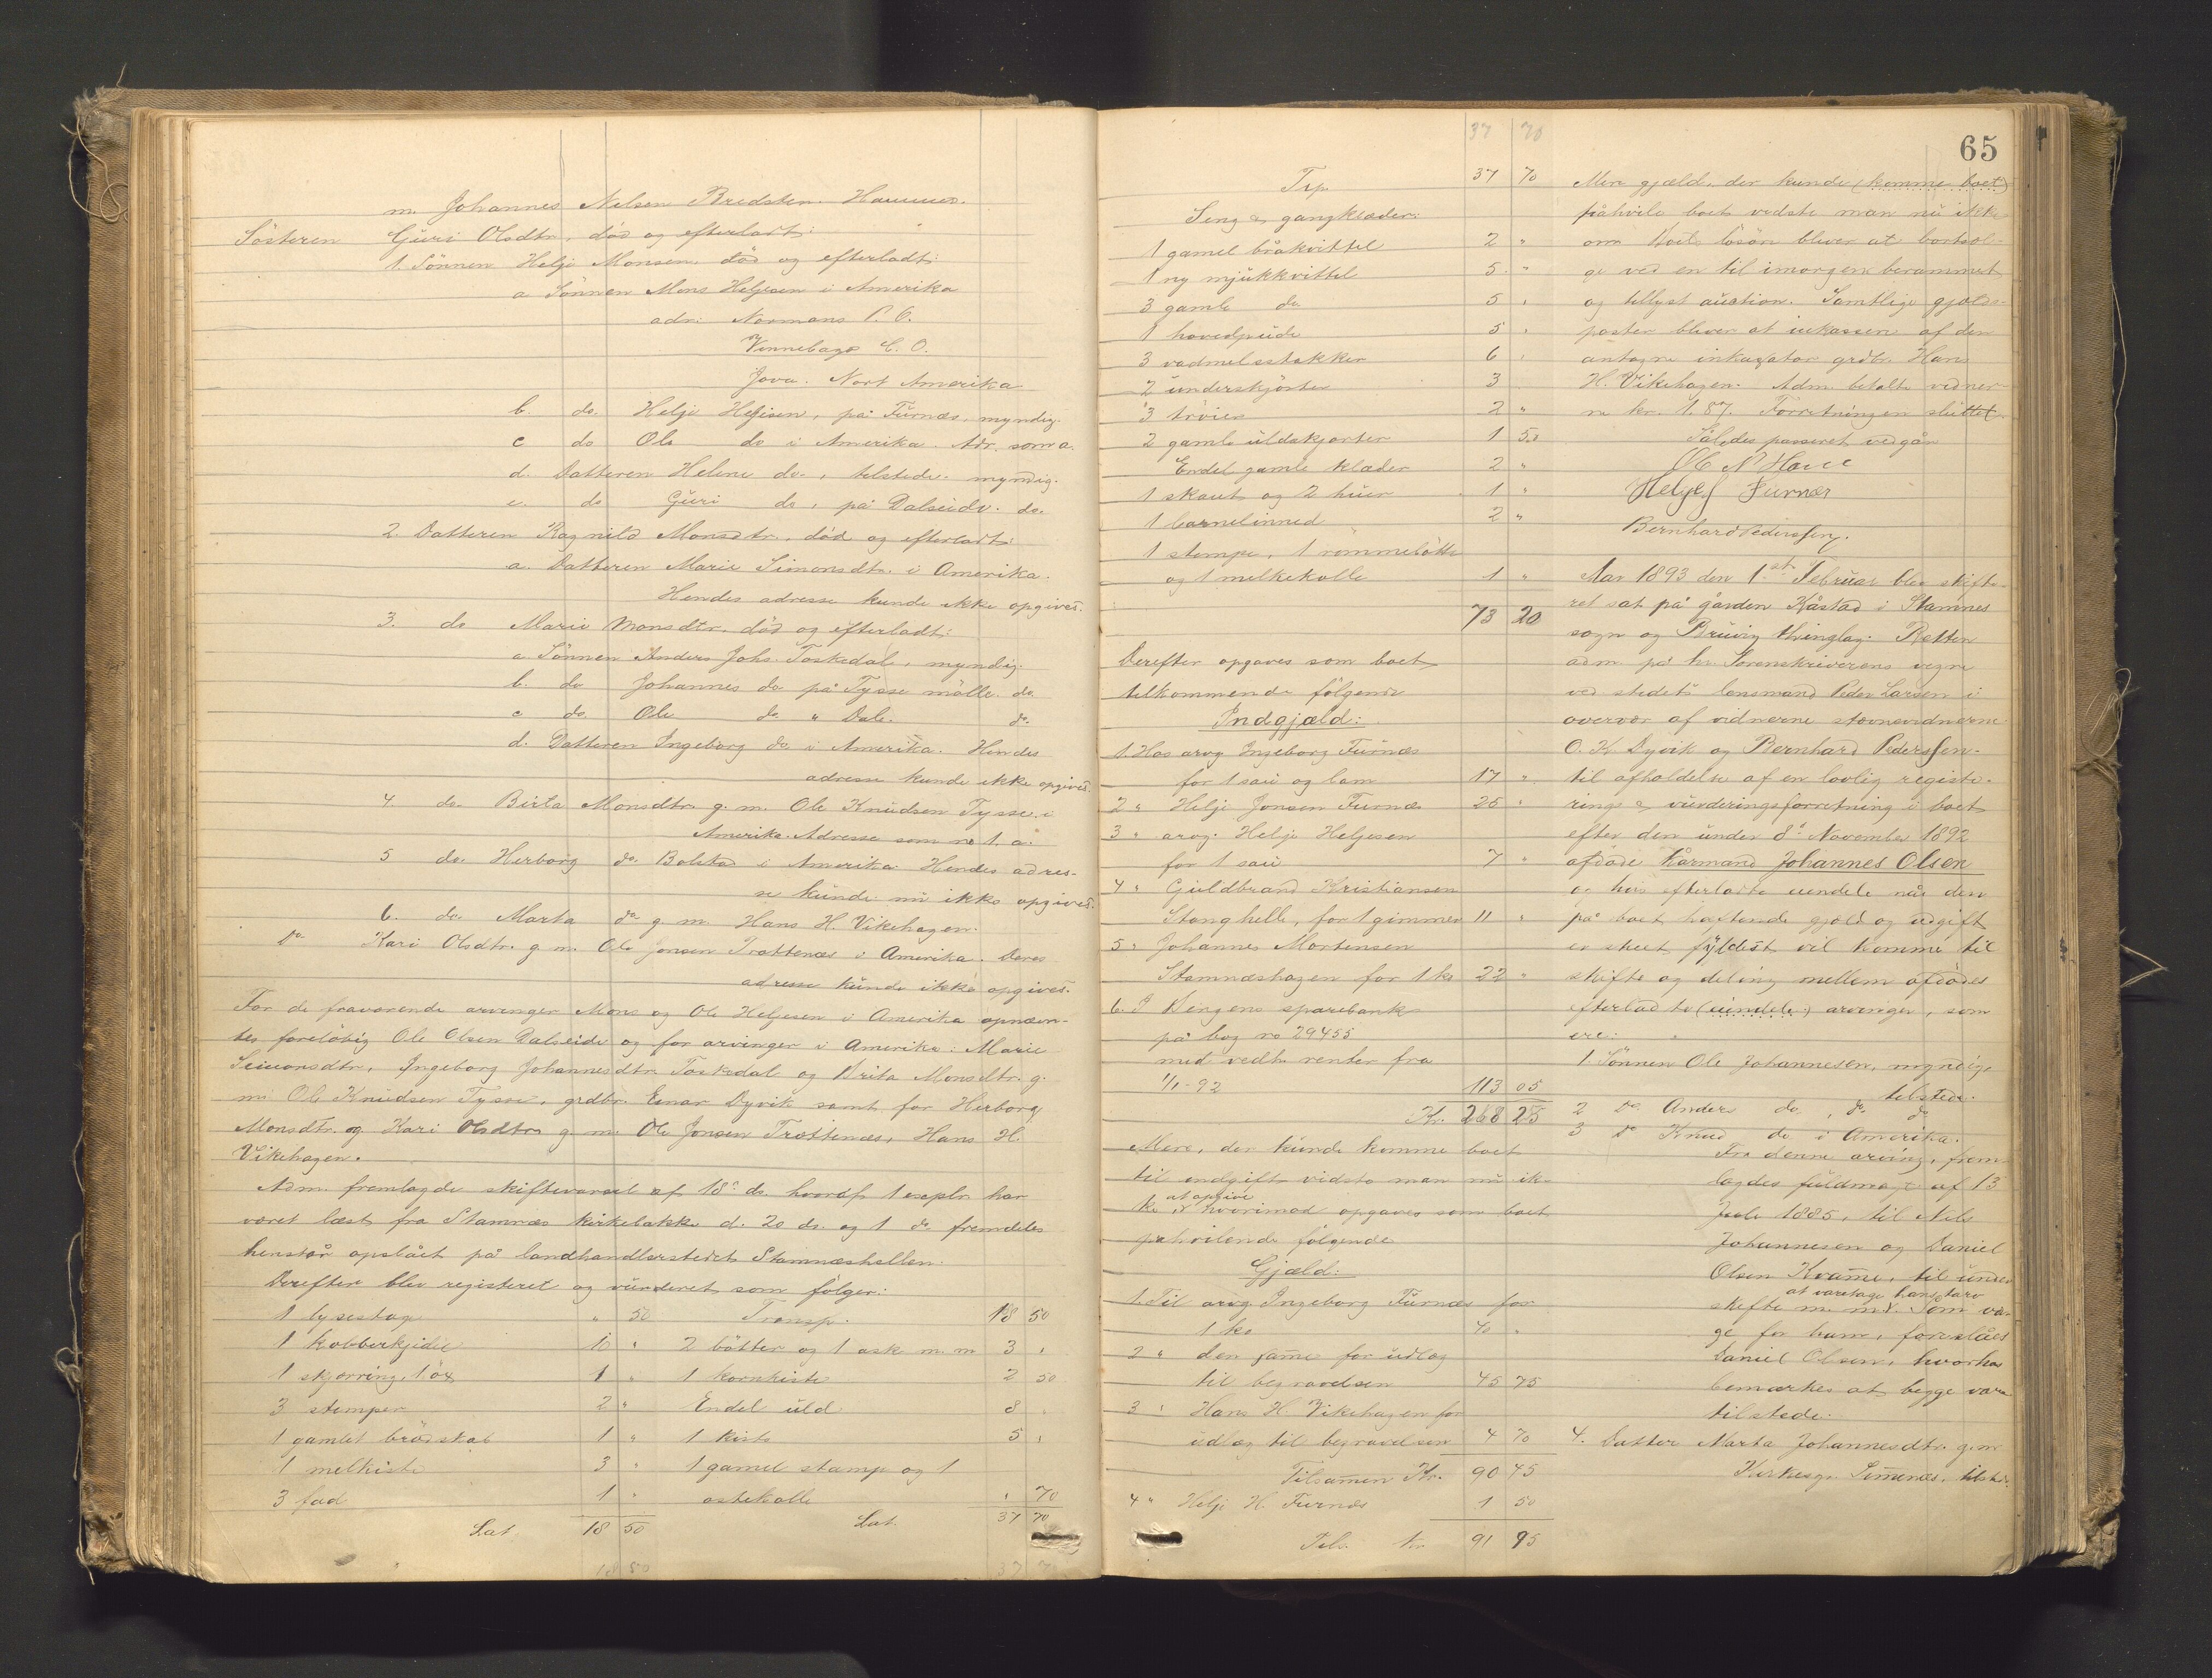 m. Johannes Nilsen Bredsten. Hammer.
Søsteren Guri Olsdtr, død og efterladt:
1. Sönnen Helje Monsen, död og efterladt:
a. Sönnen Mons Heljesen i Amerika
adr: Normans P. O.
Vinnebago C. O.
Jova. Nort Amerika
b. do. Helje Heljesen, på Furnæs, myndig.
c do Ole do i Amerika. Adr. som a.
d. Datteren Helene do, tilstede. myndig.
e. do Guri do, på Dalseide. do.
2. Datteren Ragnild Monsdtr., död og efterladt:
a. Datteren Marie Simonsdtr. i Amerika.
Hendes adresse kunde ikke opgives.
3. do Marie Monsdtr. död og efterladt:
a. Sönnen Anders Johs. Toskedal, myndig.
b. do Johannes do på Tysse mölle. do.
c do. Ole do. " Dale. do.
d. Datteren Ingeborg do i Amerika. Hendes
adresse kunde ikke opgives.
4. do. Birta Monsdtr. g. m. Ole Knudsen Tysse, i
Amerika. Adresse som no 1. a.
5 do. Herborg do. Bolstad i Amerika. Hendes adres-
se kunde nu ikke opgives.
6. do. Marta do g. m. Hans H. Vikehagen.
Do Kari Olsdtr. g. m. Ole Jonsen Trættenæs i Amerika. Deres
adresse kunde ikke opgives.
For de fraværende arvinger Mons og Ole Heljesen i Amerika opnævn-
tes foreløbig Ole Olsen Dalseide og for arvinger i Amerika: Marie
Simonsdtr., Ingeborg Johannesdtr Toskedal og Brita Monsdtr. g.
m. Ole Knudsen Tysse, grdbr. Einar Dyvik samt for Herborg
Monsdtr. og Kari Olsdtr g. m. Ole Jonsen Trættenæs, Hans H.
Vikehagen.
Adm. fremlagde skiftevarsel af 18de ds. hvoraf 1 exeplr. har
været læst fra Stamnæs kirkebakke d. 20 ds. og 1 do fremdeles
henstår opslået på landhandlerstedet Stamnæshellen.
Derefter blev registeret og vurderet som følger:
1 lysestage " 50 Transp. 18 50
1 kobberkjedel 10 " 2 bötter og 1 ask m. m 3 "
1 skjørring, 1 öx 1 " 1 kornkiste 2 50
3 stemper 2 " Endel uld 8 "
1 gamlet brødskab 1 " 1 kiste 5 "
1 melkiste 3 " 1 gamel stamp og 1
3 fad 1 " ostekolle " 70
Lat. 18 50 Lat. 37 70
18 50 37 70
37 70
65
Trp. 37 70
Seng & gangklæder:
1 gamel båkvittel 2 "
1 ny mjukkvittel 5 "
3 gamle do 5 "
1 hovedpude 5 "
3 vadmelsstakker 6 "
2 underskjörter 3
3 tröier 2 "
2 gamle uldskjorter 1 50
Endel gamle klæder 2 "
1 skaut og 2 huer 1 "
1 barnelinned 2 "
1 stempe, 1 rømmebøtte
og 1 melkekolle 1 "
73 20
Derefter opgaves som boet
tilkommende følgende
Indgjæld:
1. Hos arvg Ingeborg Furnæs
for 1 sau og lam 17 "
2 " Helje Jonsen Furnæs 25 "
3 " arvg. Helje Heljesen
for 1 sau 7 "
4 " Guldbrand Kristiansen
Stanghelle, for 1 gimmer 11 "
5 " Johannes Mortensen
Stamnæshagen for 1 ko 22 "
6. I Bergens sparebank
på bog no 29455
med vedh. renter fra
1/1-92 113 05
Kr. 268 25
Mere, der kunde komme boet
til indgift vidste man nu ik-
ke at opgive hvorimod opgaves som boet
påhvilende følgende
Gjæld:
1. Til arvg. Ingeborg Furnæs for
1 ko 40 "
2 " den samme for udlæg
til begravelsen 45 75
3 " Hans H. Vikehagen for
udlæg til begravelsen 4 70
Tilsamen Kr. 90 45
4 " Helje H. Furnæs 1 50
Tils. Kr. 91 95
Mere gjæld, der kunde (komme boet)
påhvile boet vidste man nu ikke
om Boets løsøre bliver at bortsæl-
ge ved en til imorgen berammet
og tillyst auction. Samtlige gjælds-
poster bliver at inkassere af den
antagne inkassator grdbr. Hans
H. Vikehagen. Adm. betalte vidner-
ne kr. 1.87. Forretningen sluttet.
Således passeret vedgår
Ol N Hove
Helje H Furnæs
Bernhard Pederssen.
Aar 1893 den 1ste Februar blev skifte-
ret sat på gården Kåstad i Stamnes
sogn og Bruvig thinglag. Retten
adm. på hr. Sorenskriverens vegne
ved stedets lensmand Peder Larsen i
overvær af vidnerne stævnevidnerne
O. K. Dyvik og Bernhard Pederssen-
til afholdelse af en lovlig registe-
rings & vurderingsforretning i boet
efter den under 8de November 1892
afdøde kårmand Johannes Olsen
og hvis efterladte eiendele når den
på boet heftende gjæld og udgift
er skeet fyldest vil komme til
skifte og deling mellem afdødes
efterladte (eiendele) arvinger, som
ere:
1. Sönnen Ole Johannesen, myndig,
tilstede.
2 Do Anders do, do do
3 Do Knud do i Amerika.
Fra denne arving, frem-
lagdes fuldmagt af 13
Juli 1885, til Nils
Johannesen og Daniel
Olsen Kvamme, til under
skifte m. m. at varetage hans tarv Som vær-
ge for ham, foreslåes
Daniel Olsen, hvorhos
bemærkes at begge vare
tilstede.
4. Datter Marta Johannesdtr. g. m